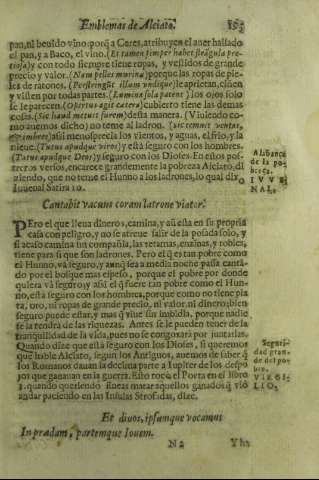 Emblemas de Alciato. 153
pan, ni beuido vino: porq̃ a Ceres, atribuyen el auer hallado
el pan, y a Baco, el vino. (Et tamen semper habet
) y con todo siempre tiene ropas, y vestidos de grande
precio y valor. (Nam pelles murinæ) porque las ropas de pie-
les de ratones. (Perstringũt illum vndique) le aprietan, ciñen
y visten por todas partes. (Lumina sola patent) los ojos solo
se le parecen. (Opertus agit cætera) cubierto tiene las demas
cosas. (Sic haud metuit furem) desta manera. (Viniendo co-
mo auemos dicho) no teme al ladron. (sic temnit ventos,
& imbres) assi menosprecia los vientos, y aguas, el frio, y la
nieue. (Tutus apudque viros) y està seguro con los hombres.
(Tutus apudque Deos) y seguro con los Dioses. En estos pos-
treros versos, encarece grandemente la pobreza Alciato, di
ziendo, que no teme el Hunno a los ladrones, lo qual dixo
Iuuenal Satira 10.
Alabança
de la po-
breza.
IVVE
NAL.
Cantabit vacuus coram latrone viator.
PEro el que llena dineros, camina, y aũ està en su propria
casa con peligro, y no se atreue salir de la posada solo, y
si acaso camina sin compañia, las retamas, enzinas, y robles,
tiene para si que son ladrones. Pero el q̃ es tan pobre como
el Hunno, và seguro, y aunq̃ sea a media noche passe cantã-
do por el bosque mas espeso, porque el pobre por donde
quiera và seguro y assi el q̃ fuere tan pobre como el Hun-
no, està seguro con los hombres, porque como no tiene pla
ta, oro, ni ropas de grande precio, ni valor, ni dineros; bien
seguro puede estar, y mas q̃ viue sin imbidia, porque nadie
se la tendra de las riquezas. Antes se le pueden tener de la
tranquilidad de la vida, pues no se congoxarà por juntarlas.
Quando dize que està seguro con los Dioses, si queremos
que hable Alciato, segun los Antiguos, auemos de saber q̃
los Romanos dauan la decima parte a Iupiter de los despo
jos que ganauan en la guerra. Esto toca el Poeta en el libro
. quando queriendo Eneas matar aquellos ganados q̃ viò
andar paciendo en las Insulas Strofadas, dize.
Seguri-
dad gran
de del po
bre.
VIRGI-
LIO.
Et diuos, ipsumque vocamus
In prædam, partemque Iouem.
N 2 Yha